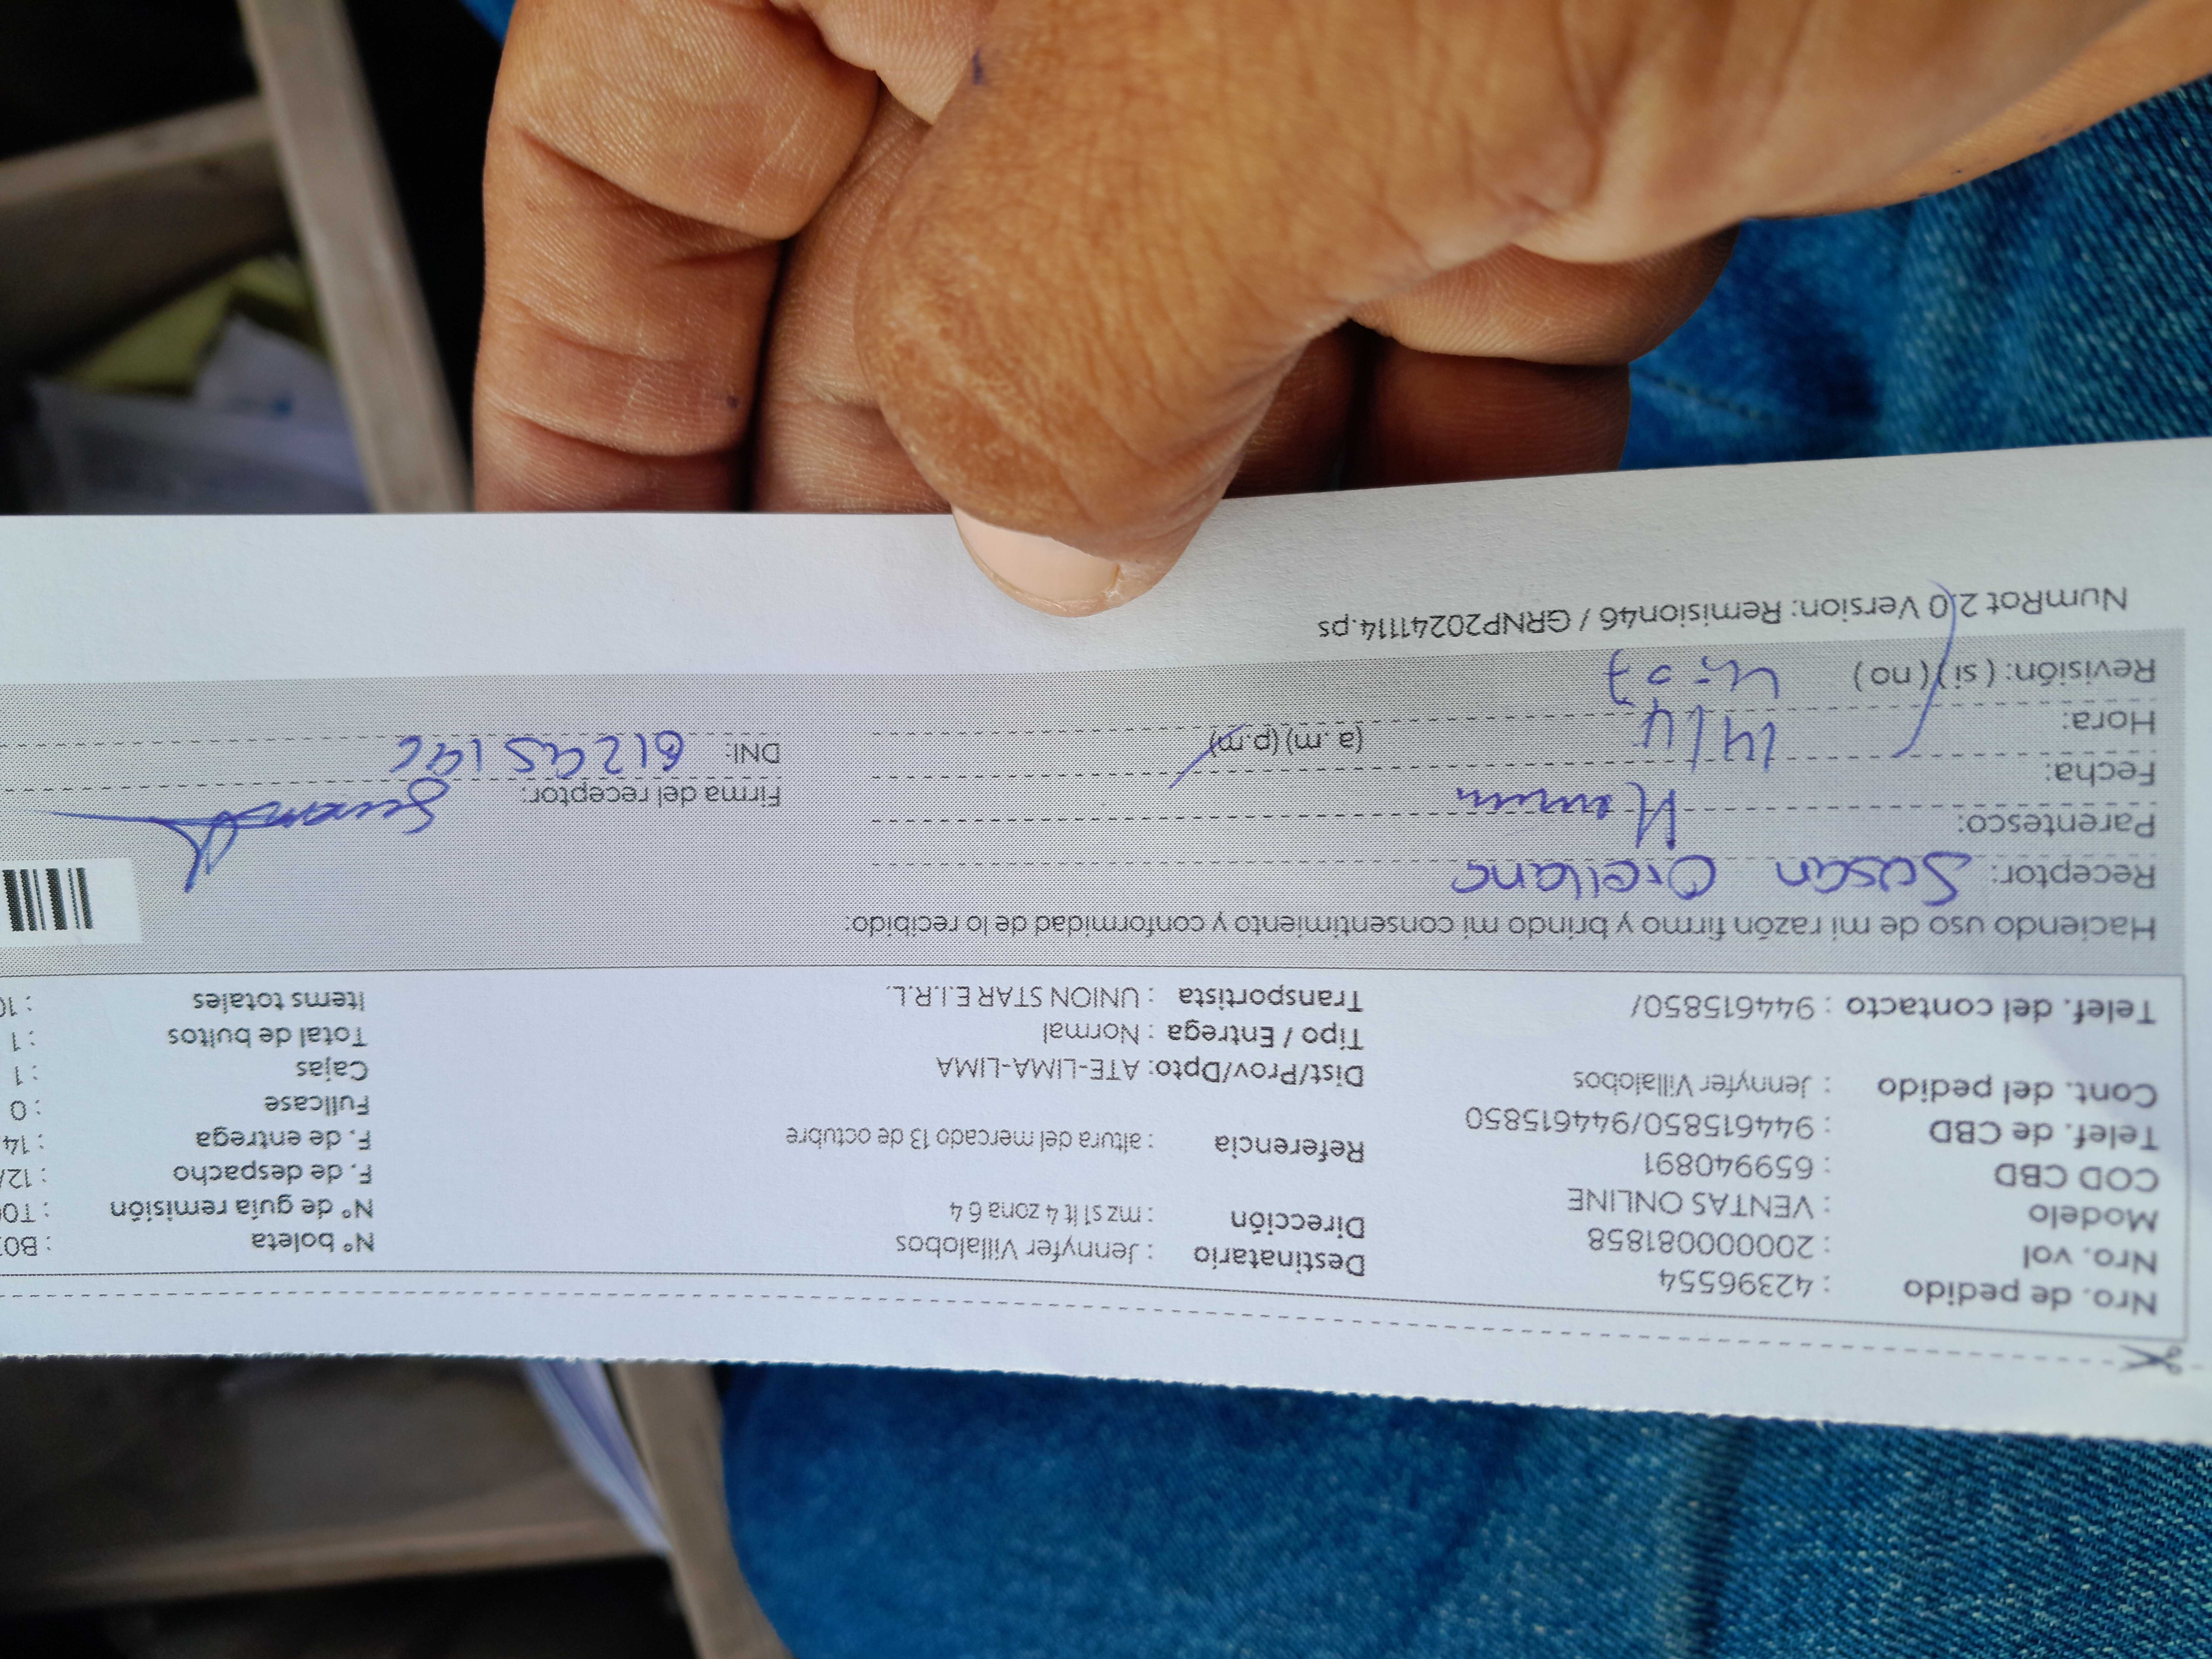 Nro. de pedido : 42396554
Nro. vol : 20000081858
Modelo : VENTAS ONLINE
COD CBD : 659940891
Telef. de CBD : 944615850/944615850
Cont. del pedido : Jennyfer Villalobos
Telef. del contacto : 944615850/
Destinatario : Jennyfer Villalobos
Dirección : mz s1 lt 4 zona 6 4
Referencia : altura del mercado 13 de octubre
Dist/Prov/Dpto: ATE-LIMA-LIMA
Tipo / Entrega : Normal
Transportista : UNION STAR E.I.R.L.
N° boleta : B0
N° de guía remisión : T0
F. de despacho : 12/
F. de entrega : 14
Fullcase : 0
Cajas : 1
Total de bultos : 1
Items totales : 10
Haciendo uso de mi razón firmo y brindo mi consentimiento y conformidad de lo recibido:
Receptor: Susan Orellana
Parentesco:
Fecha: 14/4
Hora: (a. m) (p.m)
Revisión: ( si ) ( no )
Firma del receptor:
DNI:
NumRot 2.0 Version: Remision46 / GRNP20241114.ps